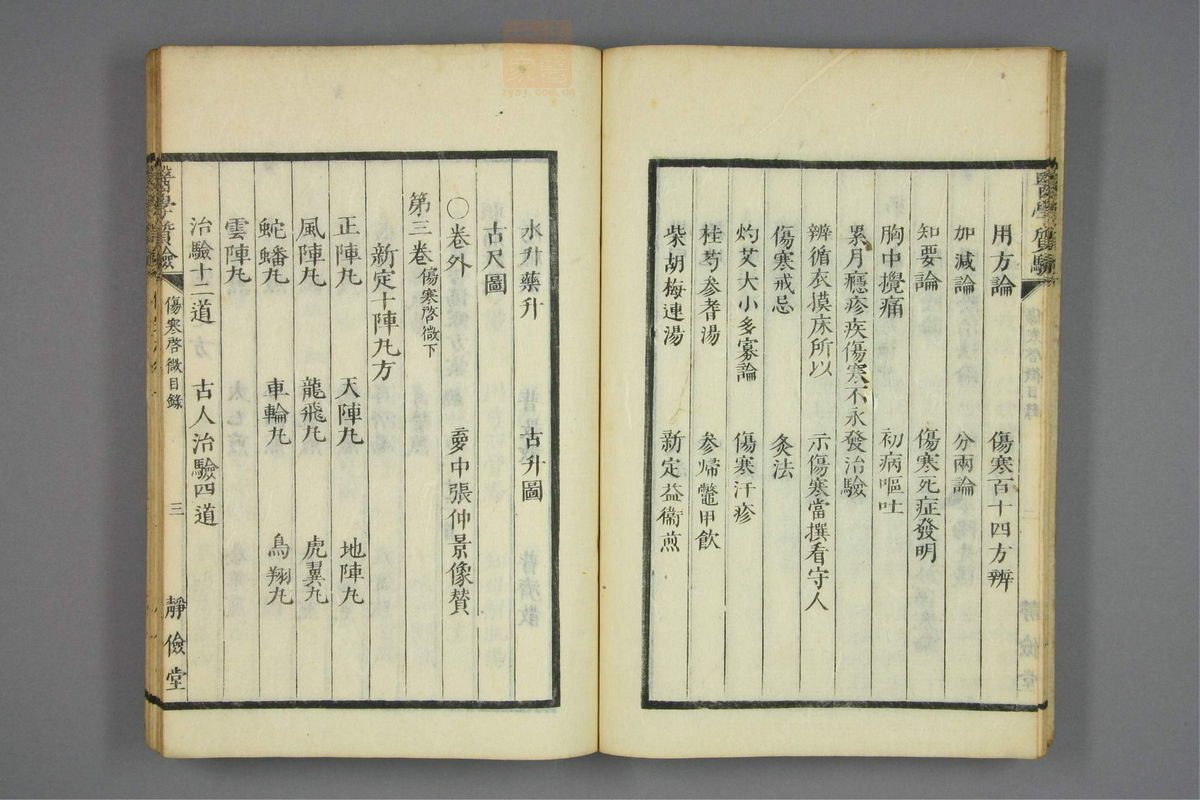 用方論　傷寒百十四方辨
加減論　分兩論
知要論　傷寒死症發明
胸中攪痛　初病嘔吐
累月癮疹疾傷寒不永發治驗
辨循衣摸床所以　示傷寒當撰看守人
傷寒戒忌　灸法
灼艾大小多寡論　傷寒汗疹
桂芍參耆湯　參歸鼈甲飲
柴胡梅連湯　新定益衞煎
水升藥升　古升圖
古尺圖
○卷外　夢中張仲景像贊
第三卷傷寒啓微下
新定十陣丸方
正陣丸　天陣丸　地陣丸
風陣丸　龍飛丸　虎翼丸
蛇蟠丸　車輪丸　鳥翔丸
雲陣丸
治驗十二道　古人治驗四道
醫學質驗　傷寒啓微目錄　三　靜儉堂
zysj.com.cn